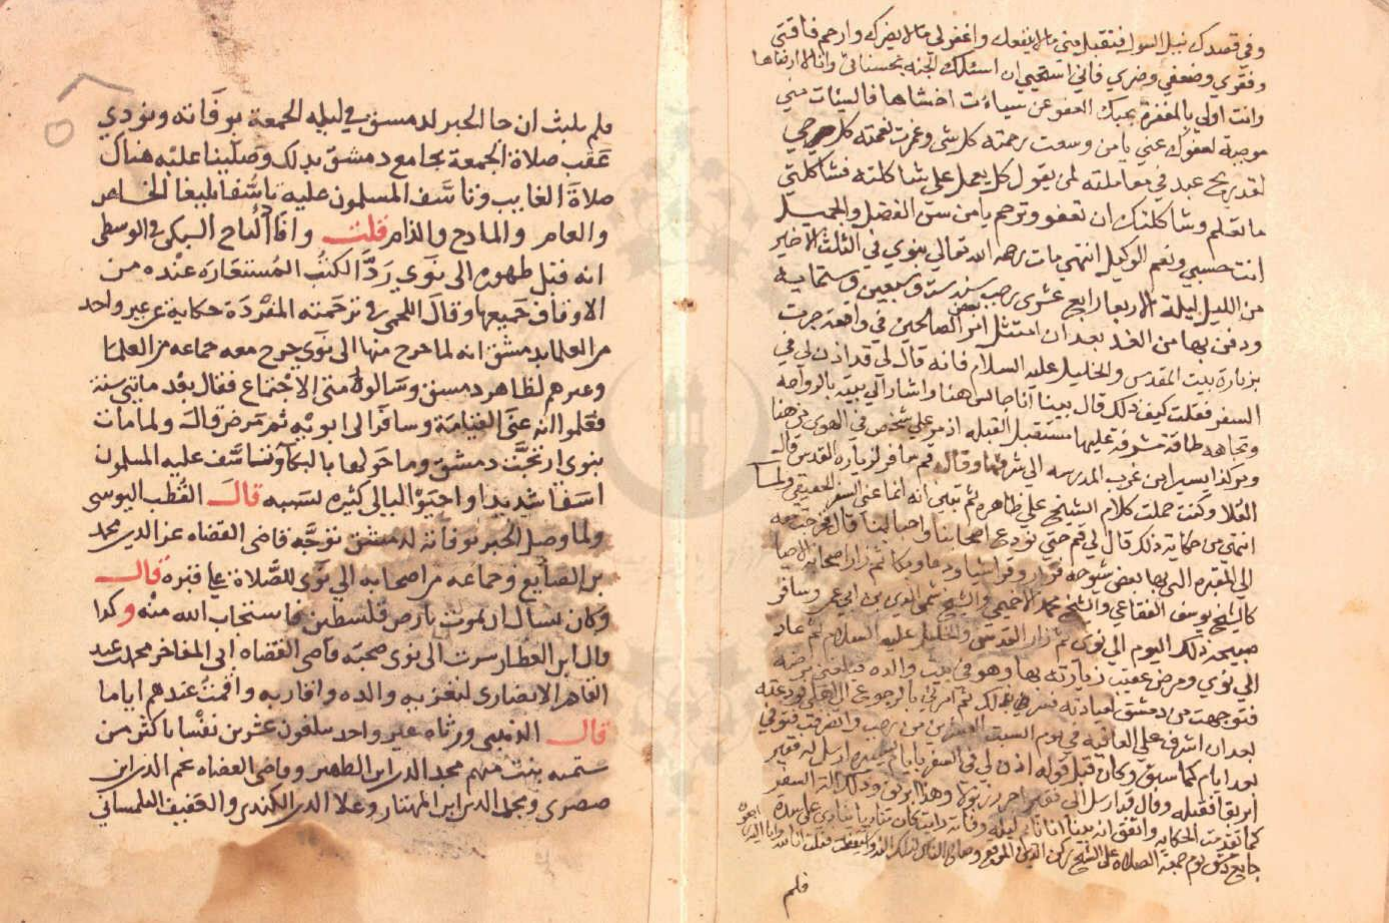 وفي قصدك نيل السول فتقبل مني مالا ينفعك واغفر لي مالا يضرك وارحم فاقتي
وفقري وضعفي وضري فاني استحيي ان اسئلك الجنة بحسناتي وانا لا ارضاها
وانت اولي بالمغفرة بحبك العفو عن سياءت اخشاها فالسيئات مني
موجبة لعفوك عني يا من وسعت رحمته كل شي وغمرت نعمته كل حي
لقد ربح عبد في معاملته لمن يقول كل يعمل علي شاكلته فشاكلتي
ما تعلم وشاكلتك ان تعفو وترحم يا من سن الفضل والجميل
انت حسبي ونعم الوكيل انتهي مات رحمه الله تعالي بنوي في الثلث الاخير
من الليل ليلة الاربعا رابع عشري رجب سنه ست وسبعين وستماية
ودفن بها من الغد بعد ان امتثل امر بعض الصالحين في واقعة جرت
بزيارة بيت المقدس والخليل عليه السلام فانه قال لي قد اذن لي في
السفر فقلت كيف ذلك قال بينا انا جالس هنا واشار الي بيته بالرواحه
وتجاهه طاقة مشرفة عليها مستقبل القبله اذ مر علي شخص في الهوي من هنا
ومر كذا يشير الي من غرب المدرسه الي شرقها وقال قم سافر لزيارة القدس قال
العلا وكنت حملت كلام الشيخ علي ظاهره ثم تبين انه انما عني السفر الحقيقي ولما
انتهي من حكاية ذلك قال لي قم حتي نودع اصحابنا واحبابنا قال فخرجت معه
الي المقبره التي بها بعض شيوخه فزار وقرا شيا ودعا وبكا ثم زار اصحابه الاحيا
كالشيخ يوسف الفقاعي والشيخ محمد الاخميمي والشيخ شمس الدين بن ابي عمر وسافر
صبيحة ذلك اليوم الي نوي ثم زار القدس والخليل عليه السلام ثم عاد
الي نوي ومرض عقيب زيارته بها وهو في بيت والده فبلغني مرضه
فتوجهت من دمشق لعيادته ففرح بذلك ثم امرني بالرجوع الي اهلي وودعته
بعد ان اشرف علي العافيه في يوم السبت العشرين من رجب وانصرفت فتوفي
بعد ايام كما سبق وكان قبل قوله اذن لي في السفر بايام يسيره ارسل له فقير
ابريقا فقبله وقال قد ارسل الي فقير اخر زربولا وهذا ابريق وذلك الة السفر
كما تقدمت الحكايه واتفق انه بينا انا نايم ليلة وفاته رايت كان مناديا ينادي علي سدة
جامع دمشق يوم جمعة الصلاة علي الشيخ ركن الدين الموقع وصاح الناس لذلك النداء فاستيقظت فقلت انا لله وانا اليه راجعون
فلم
فلم يلبث ان جا الخبر لدمسق في ليله الجمعة بوفاته ونودي
عقب صلاة الجمعة بجامع دمشق بذلك وصلينا عليه هناك
صلاة الغايب وتاسف المسلمون عليه تاسفا بليغا الخاص
والعام والمادح والذام قلت وافاد التاج السبكي في الوسطي
انه قبل ظهوره الى نوي رد الكتب المستعارة عنده من
الاوقاف جميعها وقال اللخمي في ترجمته المفردة حكاية عن غير واحد
من العلما بدمشق انه لما خرج منها الى نوي خرج معه جماعه من العلما
وغيرهم لظاهر دمسق وسالوه متى الاجتماع فقال بعد مايتي سنة
فعلموا انه عنى القيامة وسافر الى ابويه ثم تمرض قالَ ولما مات
بنوى ارتجت دمشق وما حولها بالبكا وتاسف عليه المسلمون
اسفا شديدا واحيوا ليالي كثيره لسببه قالَ القطب اليوسى
ولما وصل الخبر بوفاته لدمشق توجه قاضى القضاه عز الدين محمد
بن الصايغ وجماعه من اصحابه الي نوي للصلاة علي قبره قال
وكان يسال ان يموت بارض فلسطين فاستجاب الله منه وكذا
قال ابن العطار سرت الى نوى صحبة قاضى القضاه ابى المفاخر محمد بن عبد
القادر الانصارى لتعزية والده واقاربه واقمت عندهم اياما
قال الذهبي ورثاه غير واحد يبلغون عشرين نفسا باكثر من
ستميه بيت منهم مجد الدين ابن الظهير وقاضى القضاه نجم الدين ابن
صصرى ومجد الدين ابن المهتار وعلا الدين الكندي والعفيف التلمساني